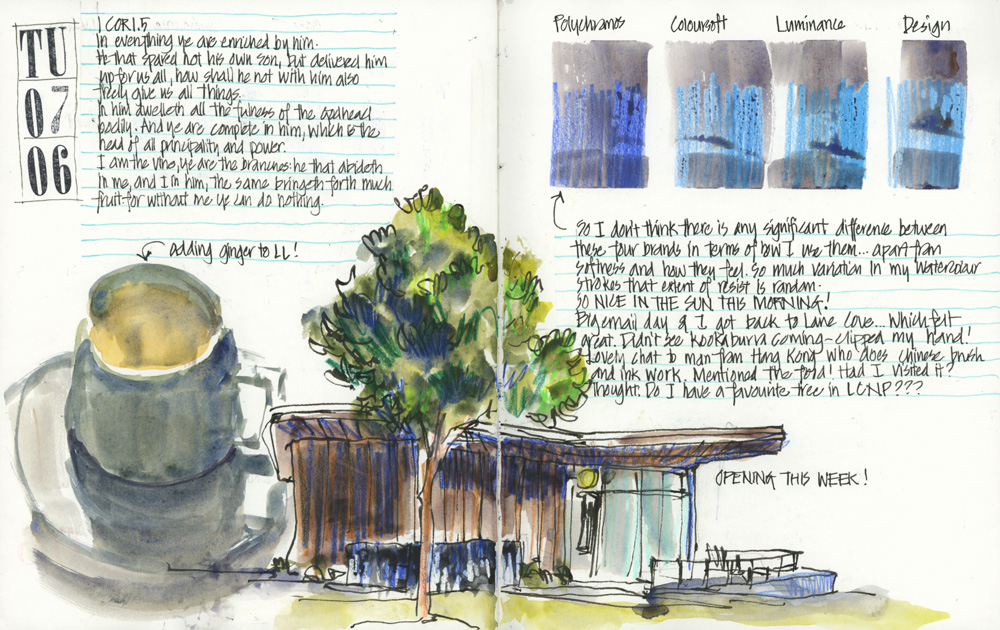 TU
07
06
1 COR 1.5
In everything ye are enriched by him.
He that spared not his own son, but delivered him
up for us all, how shall he not with him also
freely give us all things.
In him dwelleth all the fulness of the Godhead
bodily. And ye are complete in him, which is the
head of all principality and power.
I am the vine, ye are the branches: he that abideth
in me, and I in him, the same bringeth forth much
fruit-for without me ye can do nothing.
adding ginger to LL!
Polychromos Coloursoft Luminance Design
So I don't think there is any significant difference between
these four brands in terms of how I use them... apart from
softness and how they feel. So much variation in my watercolour
strokes that extent of resist is random.
SO NICE IN THE SUN THIS MORNING!
Big email day & I got back to Lane Cove... which felt
great. Didn't see kookaburra coming-clipped my hand!
Lovely chat to man from Hong Kong who does Chinese brush
and ink work. Mentioned the ford! Had I visited it?
Thought. Do I have a favourite tree in LCNP???
OPENING THIS WEEK!